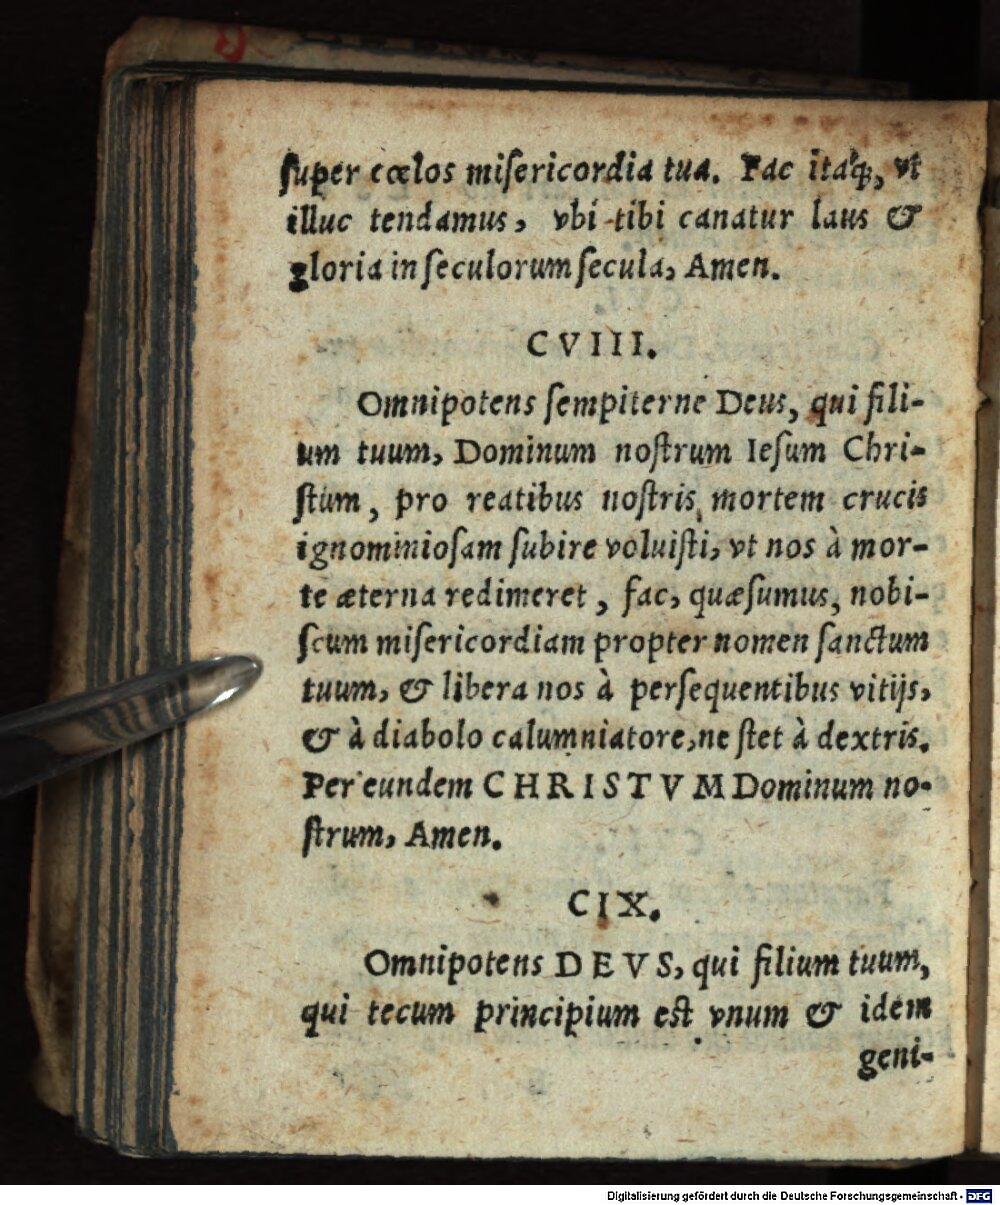 ſuper cœlos miſericordia tua. Fac itaq;, vt
illuc tendamus, vbi tibi canatur laus &
gloria in ſeculorum ſecula, Amen.
CVIII.
Omnipotens ſempiterne Deus, qui fili-
um tuum, Dominum noſtrum Ieſum Chri-
ſtum, pro reatibus noſtris mortem crucis
ignominioſam ſubire voluiſti, vt nos à mor-
te æterna redimeret, fac, quæſumus, nobi-
ſcum miſericordiam propter nomen ſanctum
tuum, & libera nos à perſequentibus vitijs,
& à diabolo calumniatore, ne ſtet à dextris.
Per eundem CHRISTVM Dominum no-
ſtrum, Amen.
CIX.
Omnipotens DEVS, qui filium tuum,
qui tecum principium eſt vnum & idem
geni-
Digitalisierung gefördert durch die Deutsche Forschungsgemeinschaft - DFG